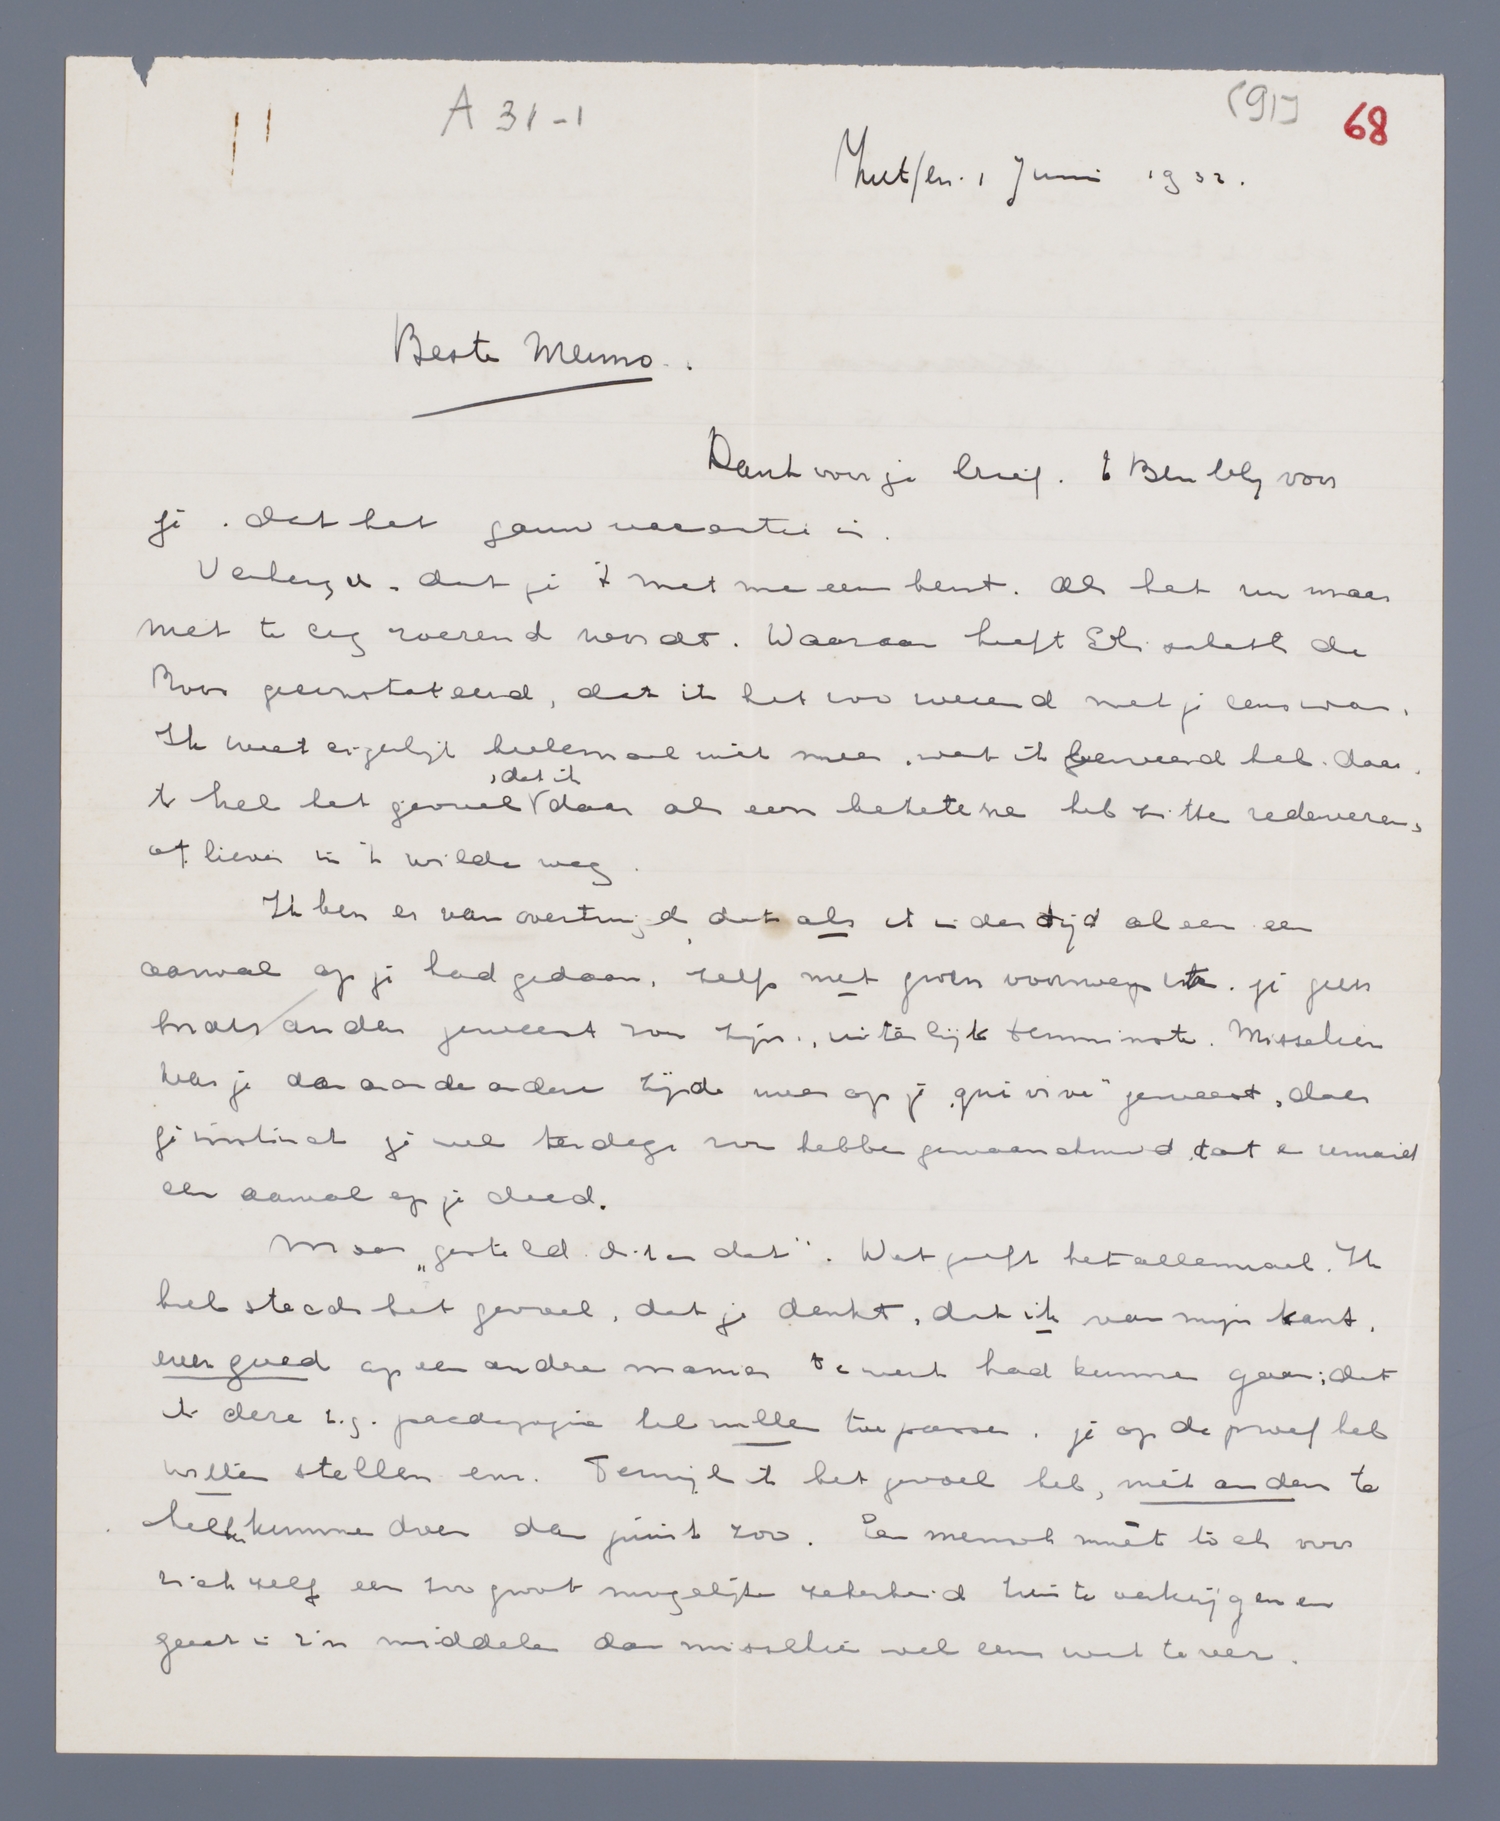 A 31-1
(91)
68
Zutfen. 1 Juni 1932.
Beste Menno.
Dank voor je brief. k Ben blij voor
je. dat het gauw vacantie is.
Verheugd. dat je 't met me eens bent. Als het nu maar
niet te erg roerend wordt. Waaraan heeft Elisabeth de
Roos geconstateerd, dat ik het zoo roerend met je eens was.
Ik weet eigenlijk heelemaal niet meer, wat ik beweerd heb daar.
k heb het gevoel, dat ik daar als een bezetene heb zitten redeneeren,
of liever in 't wilde weg.
Ik ben er van overtuigd, dat als ik indertijd al eer een
aanval op je had gedaan, zelfs met groven voorwerpen. je geen
haar anders geweest zou zijn, uiterlijk tenminste. Misschien
was je dan aan de andere zijde meer op je „qui vive" geweest, daar
je instinct je wel terdege zou hebben gewaarschuwd, dat er iemand
een aanval op je deed.
Maar „gesteld dit en dat". Wat geeft het allemaal. Ik
heb steeds het gevoel, dat je denkt, dat ik van mijn kant,
even goed op een andere manier te werk had kunnen gaan; dat
ik deze z.g. paedagogie heb willen toepassen. je op de proef heb
willen stellen enz. Terwijl ik het gevoel heb, niet anders te
hebben kunnen doen dan juist zoo. Een mensch moet toch voor
zich zelf een zoo groot mogelijke zekerheid zien te verkrijgen en
gaat in z'n middelen dan misschien wel eens wat te ver.